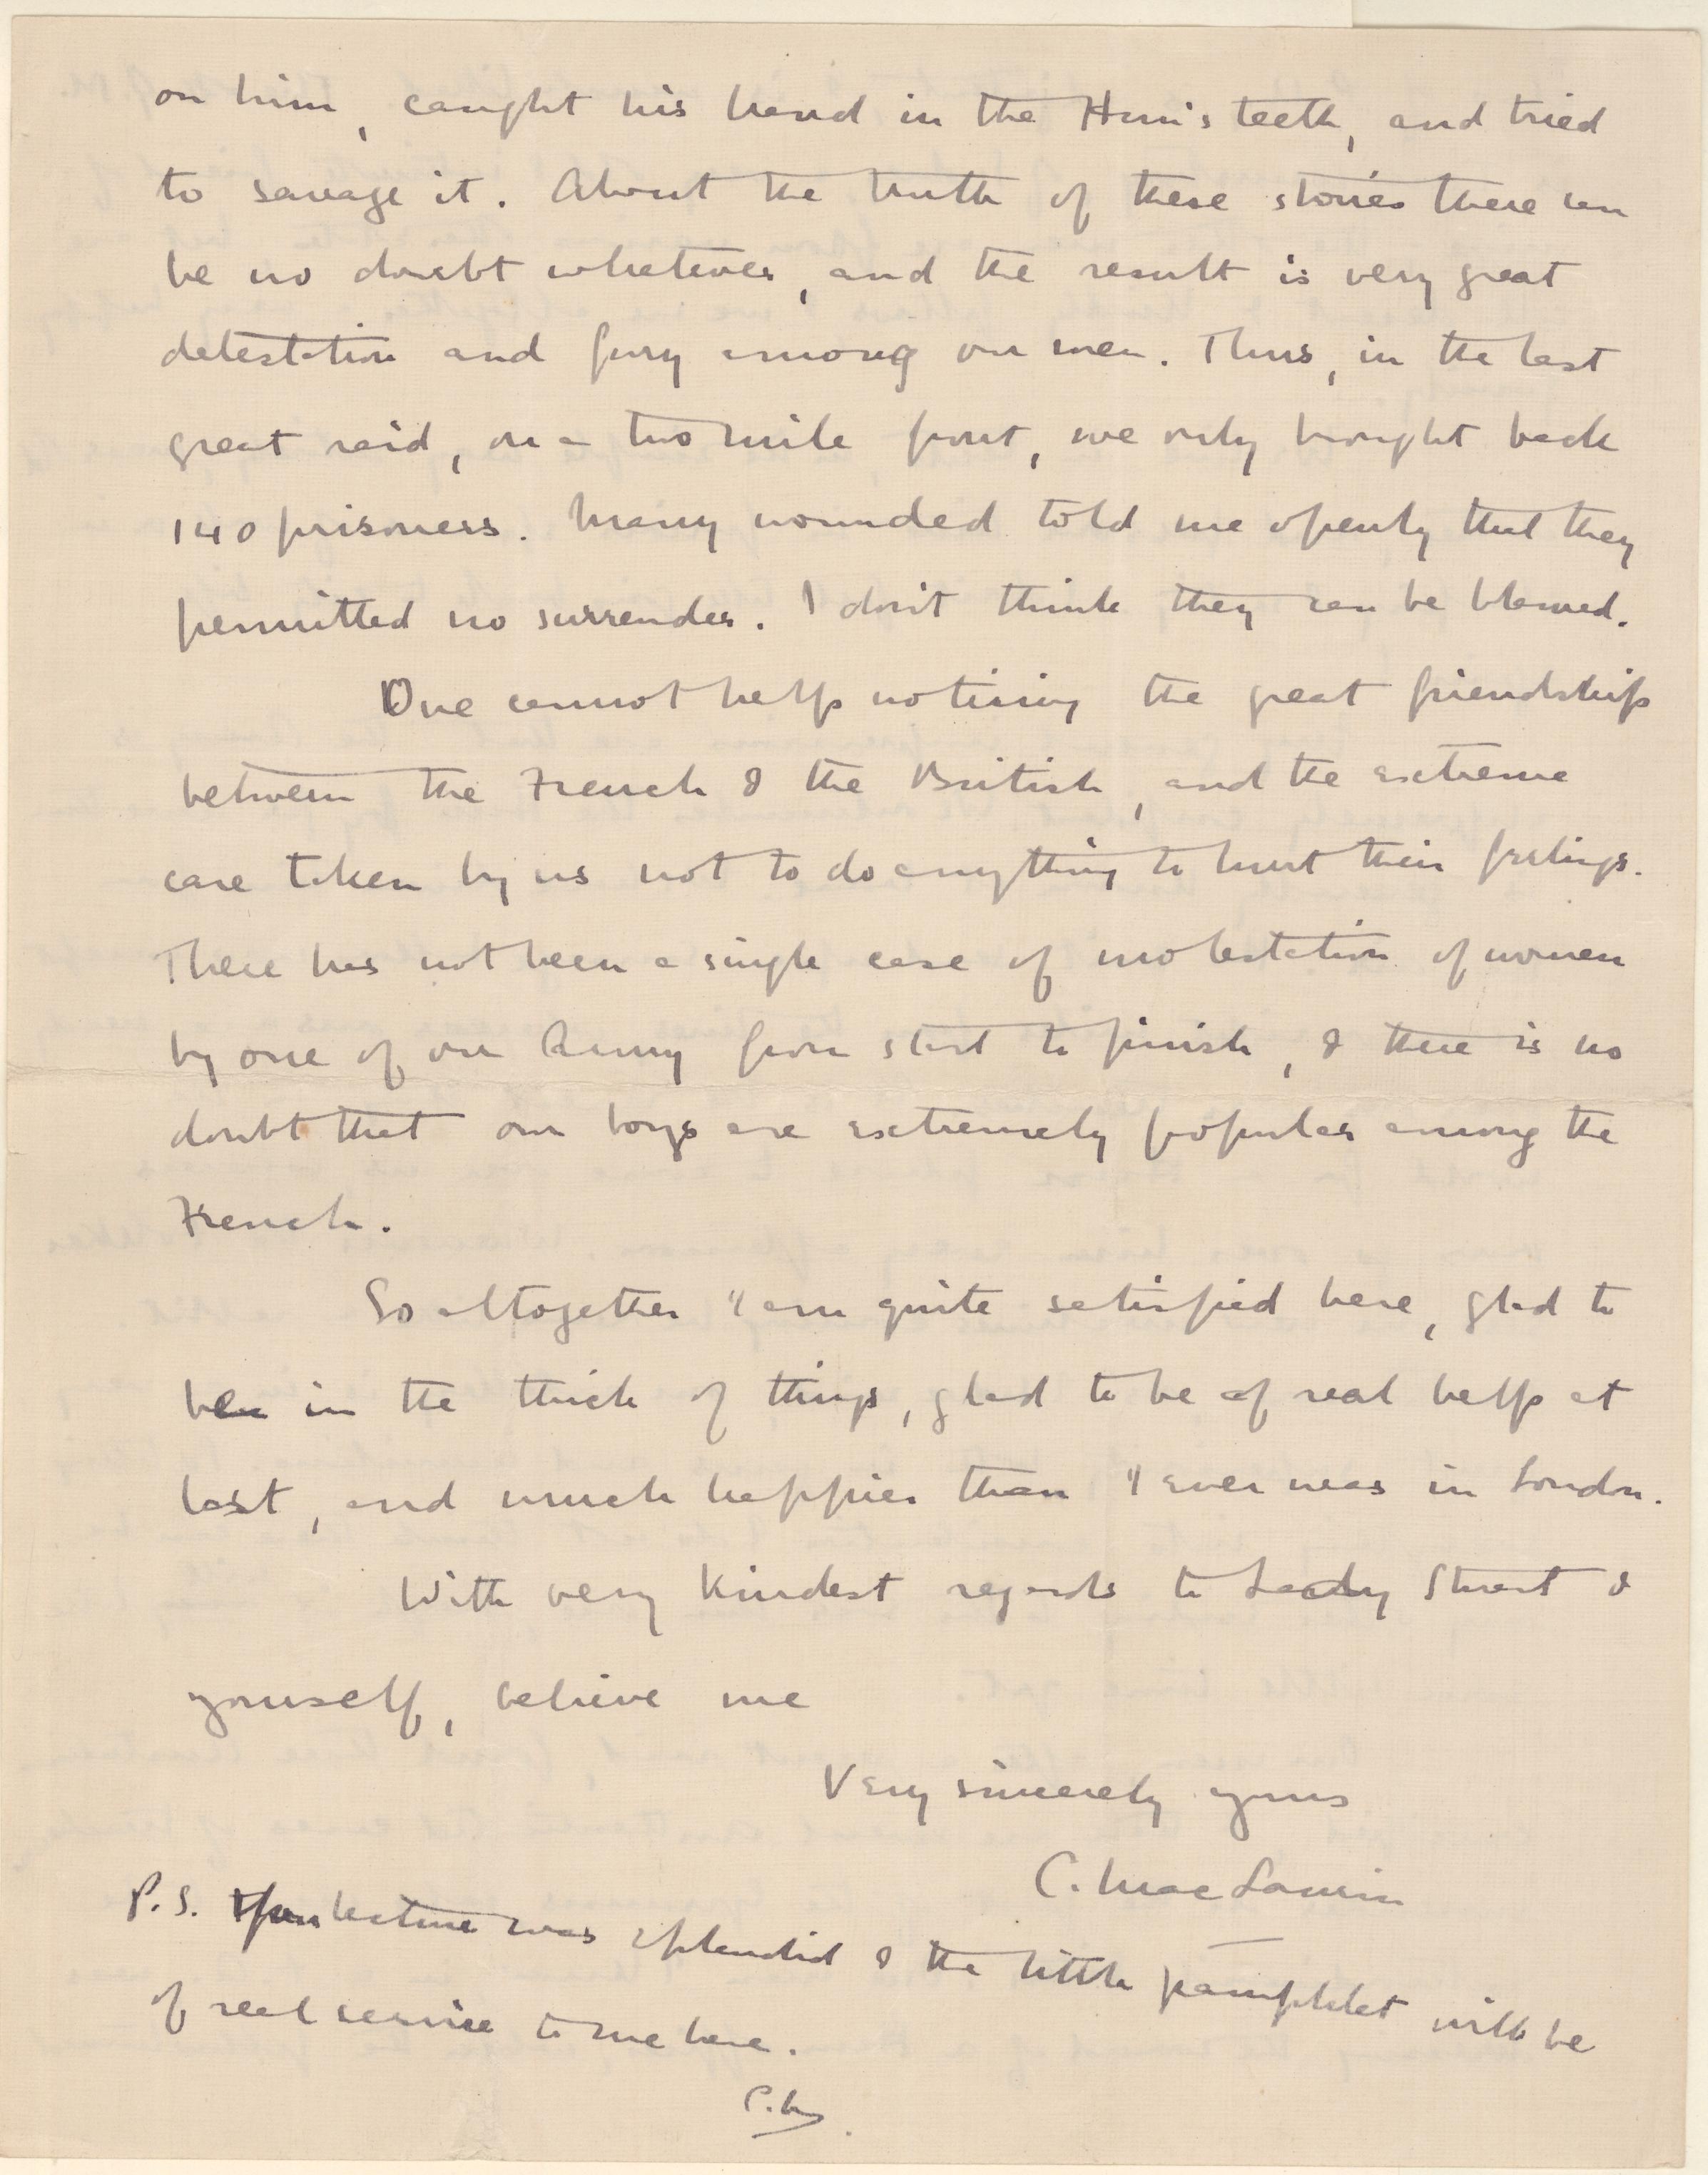 on him, caught his hand in the Hun's teeth, and tried
to savage it. About the truth of these stories there can
be no doubt whatever, and the result is very great
detestation and fury among our men. Thus, in the last
great raid, on a two mile front, we only brought back
140 prisoners. Many wounded told me openly that they
permitted no surrender. I don't think they can be blamed.
One cannot help noticing the great friendship
between the French & the British, and the extreme
care taken by us not to do anything to hurt their feelings.
There has not been a single case of molestation of women
by one of our Army from start to finish, & there is no
doubt that our boys are extremely popular among the
French.
So altogether I am quite satisfied here, glad to
be in the thick of things, glad to be of real help at
last, and much happier than I ever was in London.
With very kindest regards to Lady Stuart &
yourself, believe me
Very sincerely yours
C. MacLaurin
P.S. Your lecture was splendid & the little pamphlet will be
of real service to me here.
C. M.